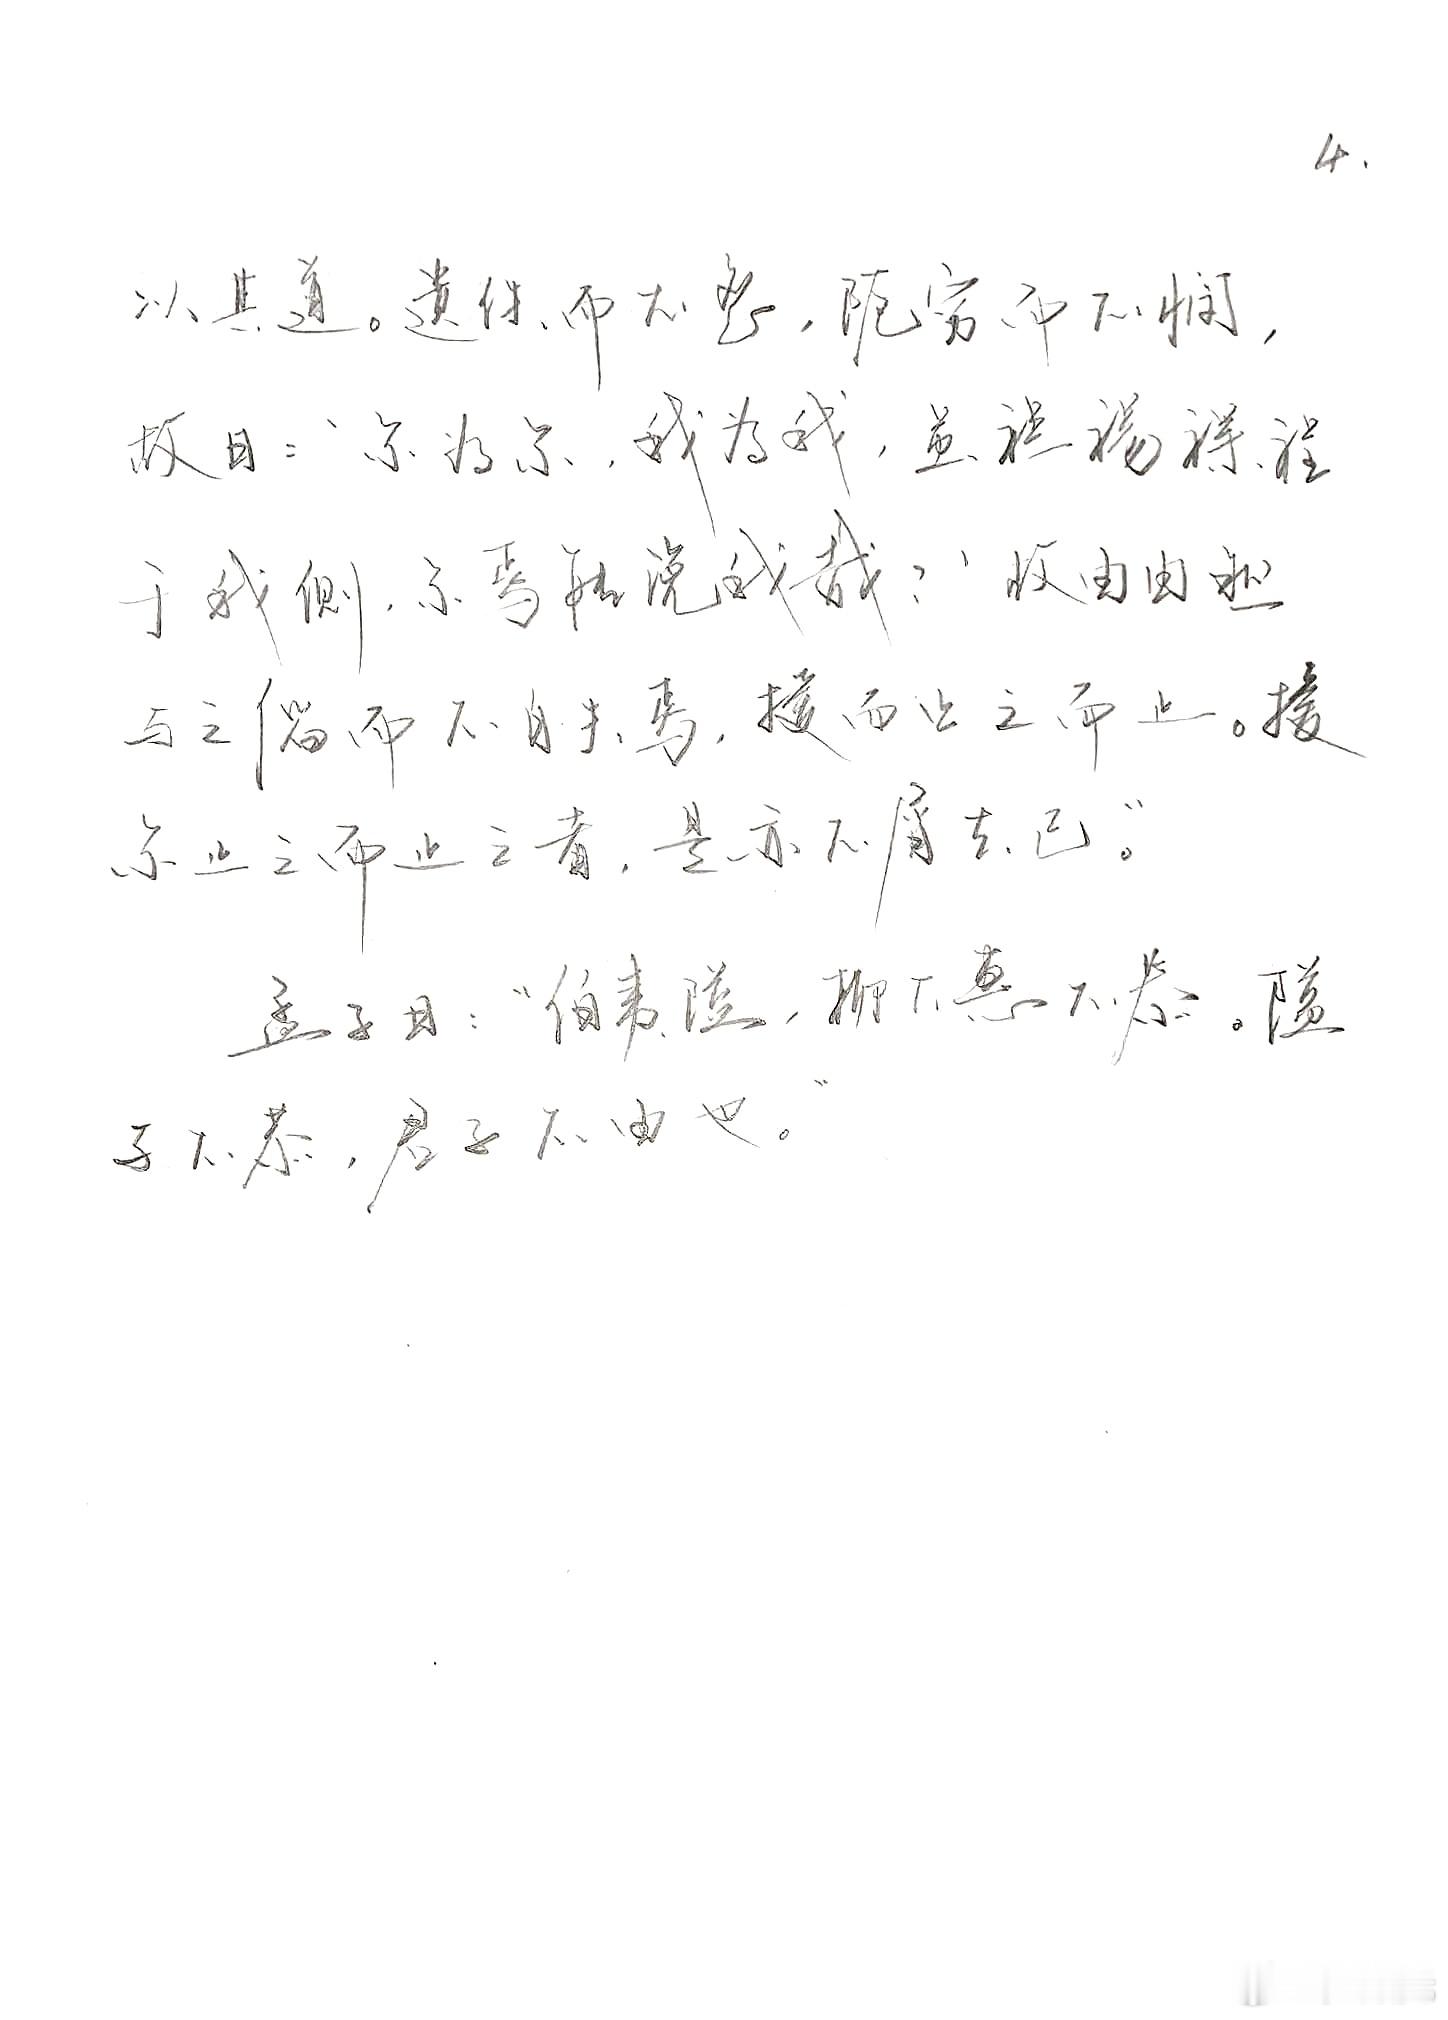 4.
以其道。遗佚而不怨，阨穷而不悯，
故曰：‘尔为尔，我为我，虽袒裼裸裎
于我侧，尔焉能浼我哉？’故由由然
与之偕而不自失焉，援而止之而止。援
而止之而止之者，是亦不屑去已。”
孟子曰：“伯夷隘，柳下惠不恭。隘
与不恭，君子不由也。”